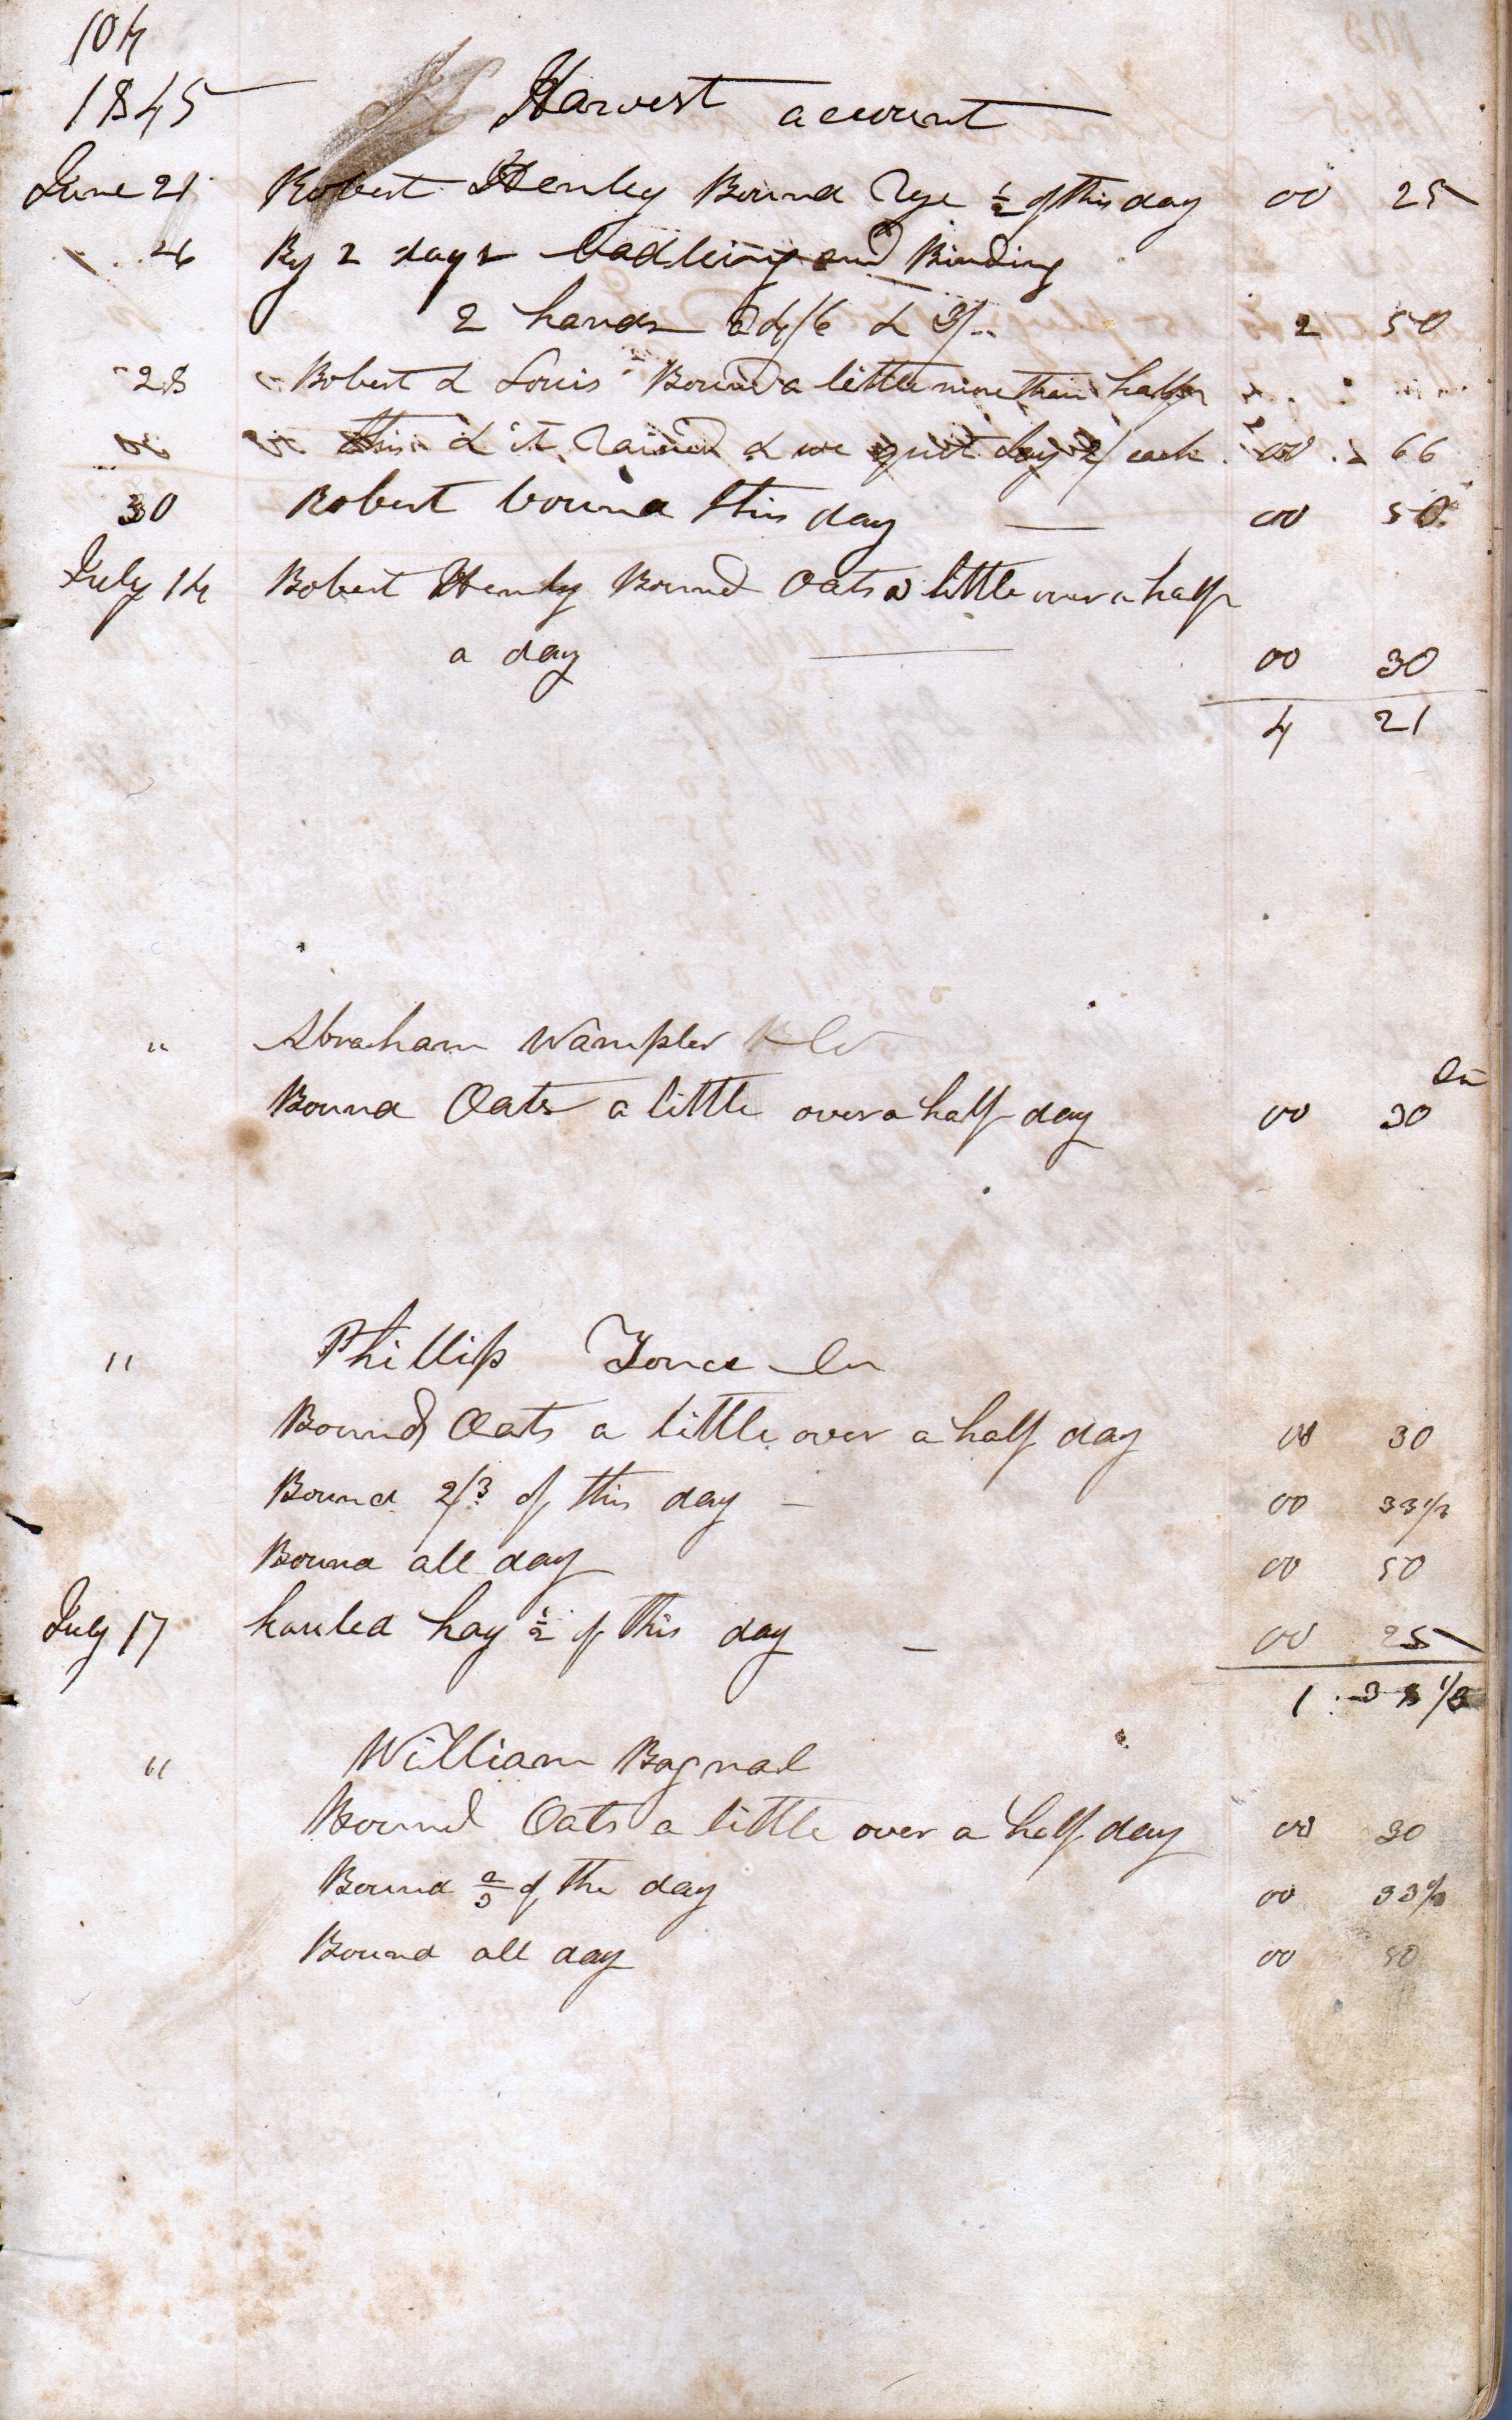 104
1845 Harvest account
June 21 Robert Henley Bound Rye ½ of this day 00 25
26 By 2 days Cadleing and Binding
2 hands a 4/6 & 3/.. 2 50
" 28 Robert & Louis Bound a little more than half
this & it rained & we quit day 2/ each 00 66
30 Robert bound this day — 00 50
July 14 Robert Henly Bound Oats a little over a half
a day — 00 30
4 21
" Abraham Wampler
Bound Oats a little over a half day 00 30
" Phillip Yonce
Bound Oats a little over a half day 00 30
Bound 2/3 of this day – 00 33 1/3
Bound all day 00 50
July 17 hauled hay ½ of this day – 00 25
1 38 1/3
" William Bagnal
Bound Oats a little over a half day 00 30
Bound 2/3 of the day 00 33 1/3
Bound all day 00 50